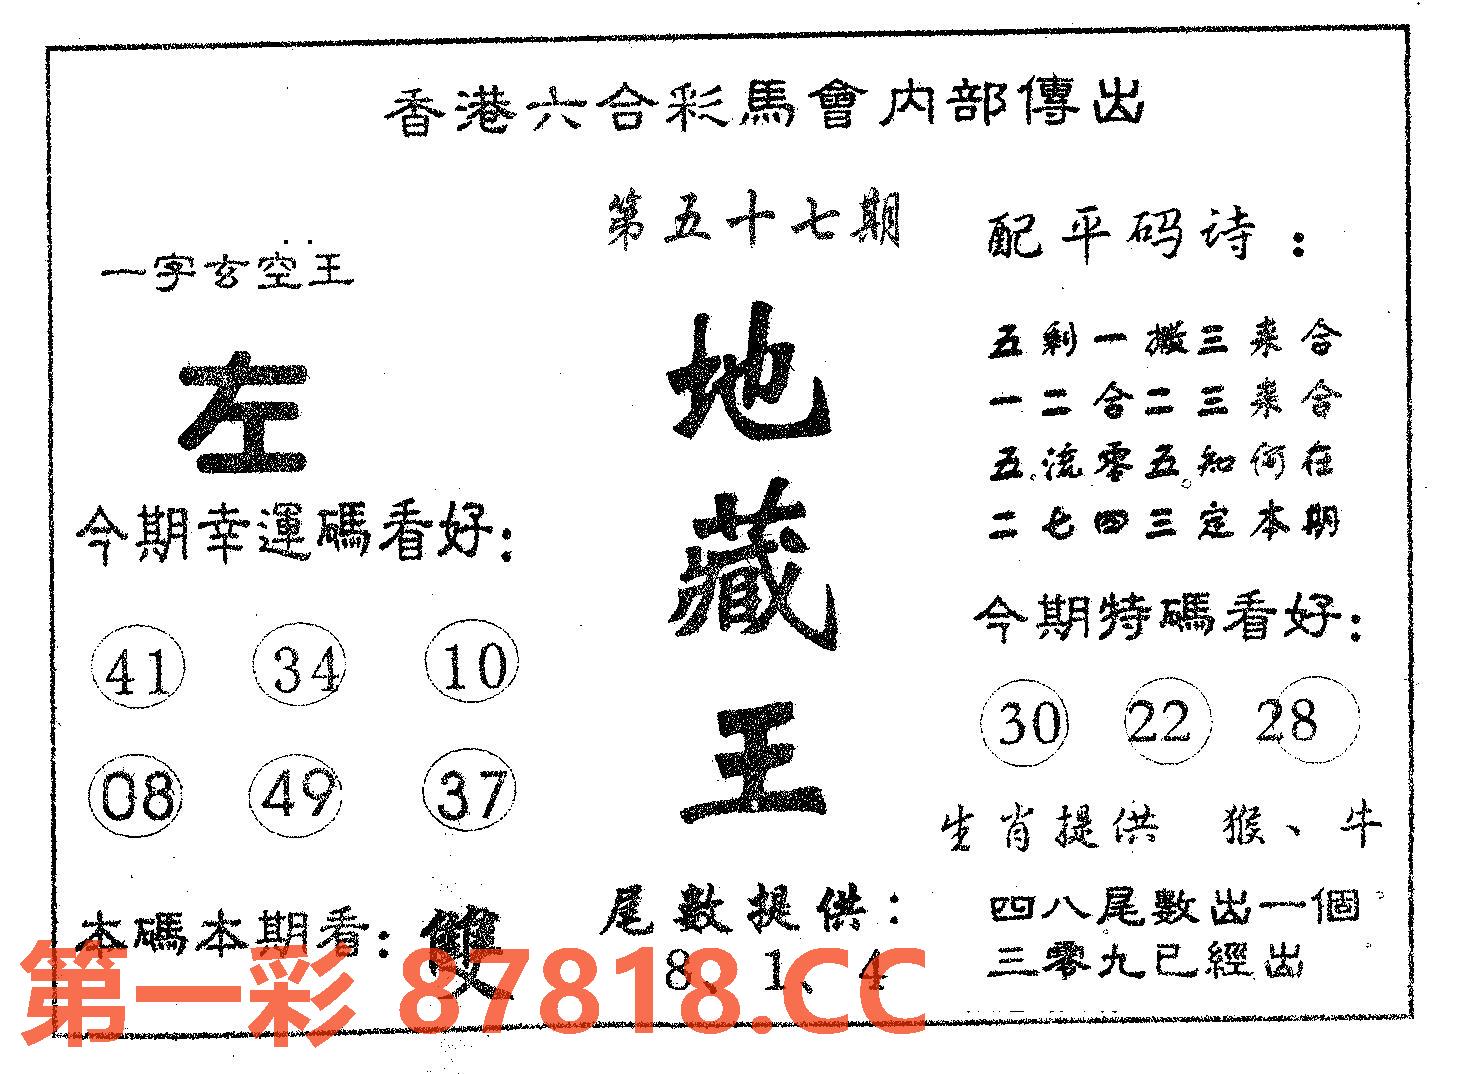 香港六合彩馬會内部傳出
第五十七期
一字玄空王
左
今期幸運碼看好:
41 34 10
08 49 37
本碼本期看: 雙
地
藏
王
尾數提供:
8、1、4
配平码诗:
五剩一搬三来合
一二合二三来合
五流零五知何在
二七四三定本期
今期特碼看好:
30 22 28
生肖提供 猴、牛
四八尾數出一個
三零九已經出
第一彩 87818.CC